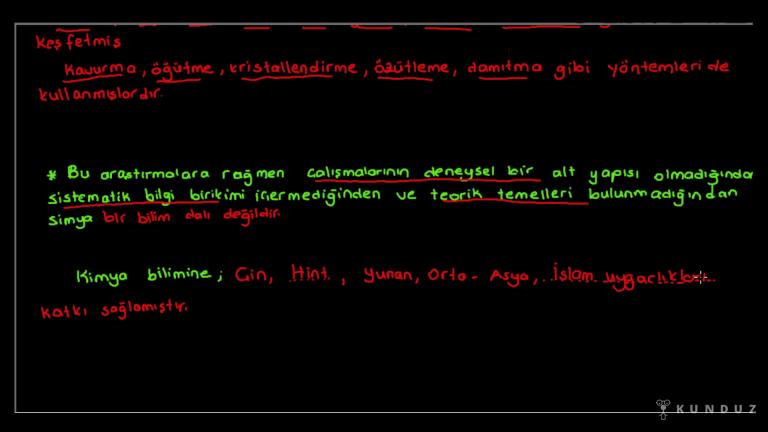 keşfetmiş
Kavurma, öğütme, kristallendirme, özütleme, damıtma gibi yöntemleri de
kullanmışlardır.
* Bu araştırmalara rağmen çalışmalarının deneysel bir alt yapısı olmadığında
sistematik bilgi birikimi içermediğinden ve teorik temelleri bulunmadığından
simya bir bilim dalı değildir.
Kimya bilimine; Çin, Hint, Yunan, Orta-Asya, İslam uygarlıkları
katkı sağlamıştır.
KUNDUZ